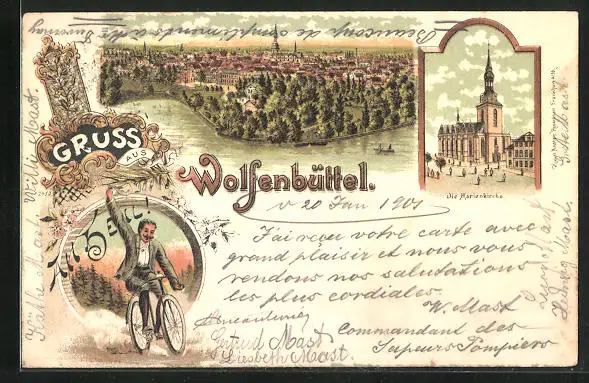 GRUSS
AUS
Wolfenbüttel.
Die Marienkirche
All Heil!
20 Jan 1901
J'ai reçu votre carte avec
grand plaisir et nous vous
rendons nos salutations
les plus cordiales.
W. Mast
Commandant des
Sapeurs Pompiers
Gertrud Mast
Liesbeth Mast.
Käthe Mast
Willi Mast.
Mast.